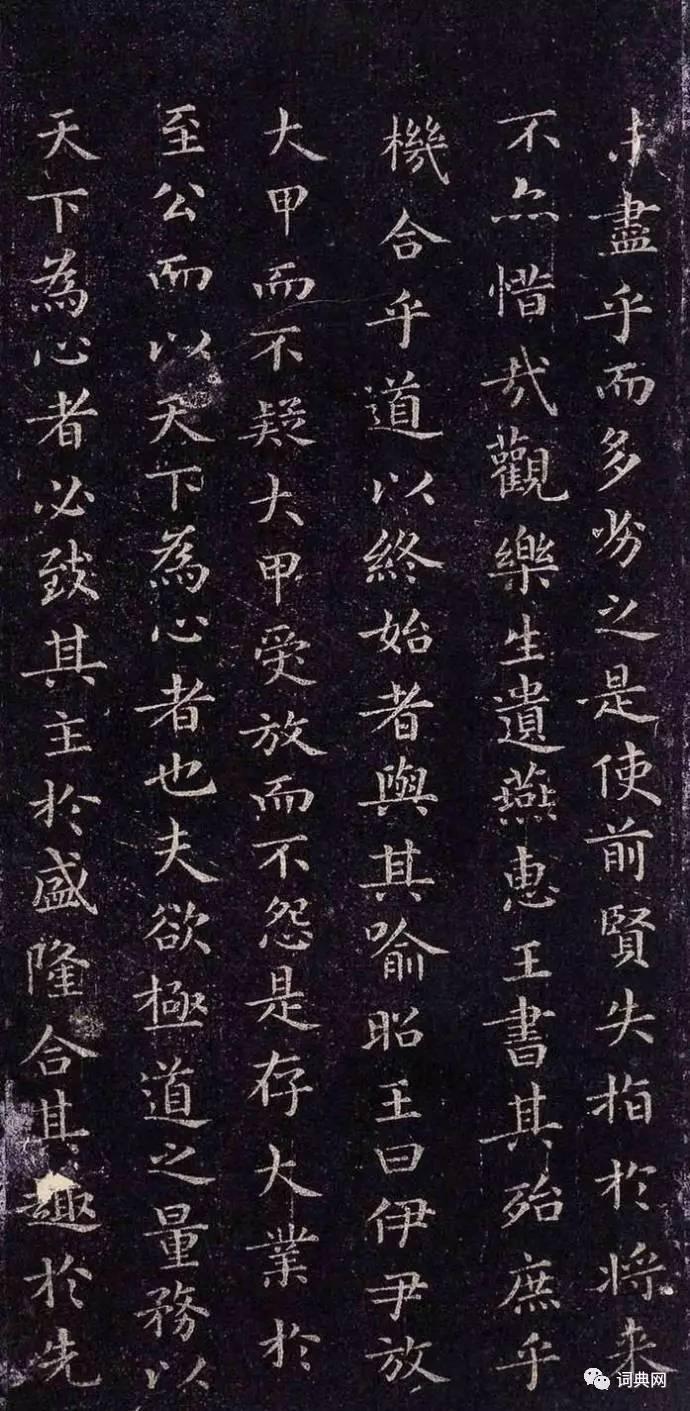 未盡乎而多劣之是使前賢失指於將来
不亦惜哉觀樂生遺燕惠王書其殆庶乎
機合乎道以終始者與其喻昭王曰伊尹放
大甲而不疑大甲受放而不怨是存大業於
至公而以天下為心者也夫欲極道之量務以
天下為心者必致其主於盛隆合其趣於先
词典网